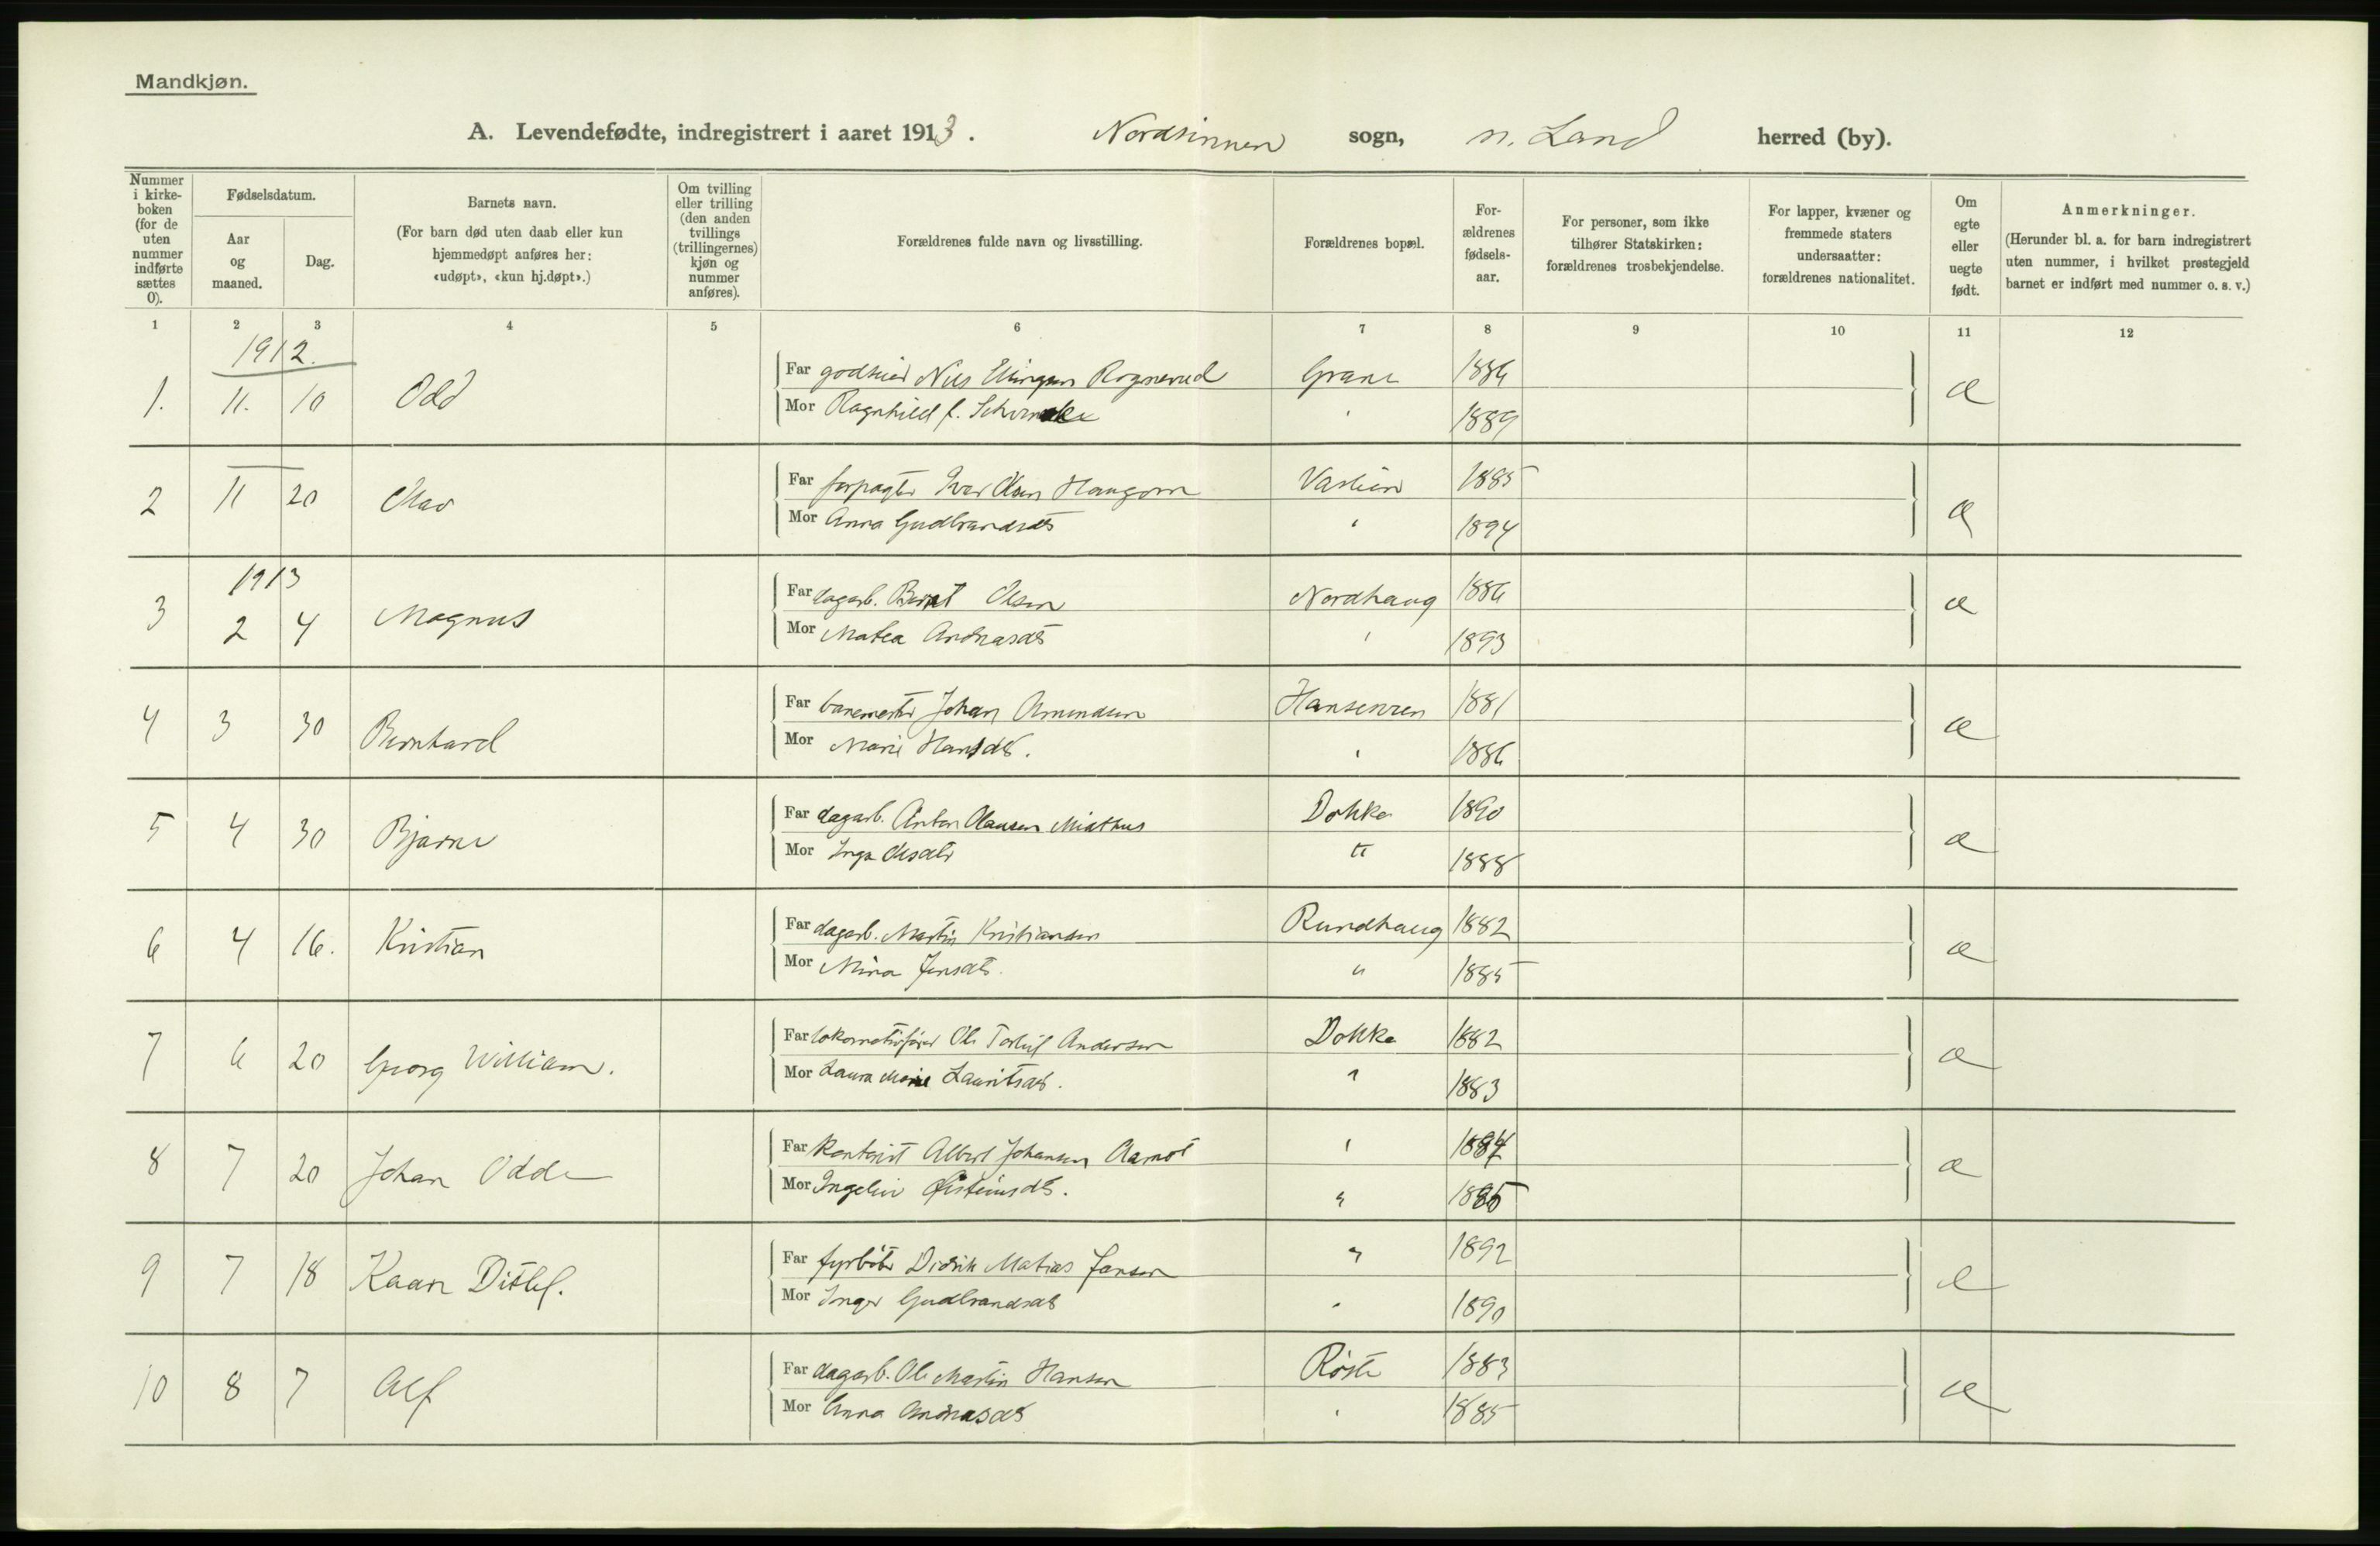 Mandkjøn.
A. Levendefødte, indregistrert i aaret 1913. Nordsinnen sogn, n. Land herred (by).
Nummer i kirke-boken (for de uten nummer indførte sættes 0).
Fødselsdatum.
Aar og maaned.
Dag.
Barnets navn.
(For barn død uten daab eller kun hjemmedøpt anføres her: «udøpt», «kun hj.døpt».)
Om tvilling eller trilling (den anden tvillings (trillingernes) kjøn og nummer anføres).
Forældrenes fulde navn og livsstilling.
Forældrenes bopæl.
For-ældrenes fødsels-aar.
For personer, som ikke tilhører Statskirken: forældrenes trosbekjendelse.
For lapper, kvæner og fremmede staters undersaatter: forældrenes nationalitet.
Om egte eller uegte født.
Anmerkninger.
(Herunder bl. a. for barn indregistrert uten nummer, i hvilket prestegjeld barnet er indført med nummer o. s. v.)
1 2 3 4 5 6 7 8 9 10 11 12
1912.
1. 11. 10 Odd Far godseier Nils Rognerud Grane 1886 æ
Mor Ragnhild f. " 1889
2 11 20 Olav Far forpagter Iver Olsen Haugom 1885 æ
Mor Anna Gudbrandsdt " 1894
1913
3 2 4 Magnus Far dagarb. Bernt Olsen Nordhaug 1886 æ
Mor Matea Andreasdt " 1893
4 3 30 Bernhard Far banemester Johan Amundsen Hansenren 1881 æ
Mor Marie Hansdt. " 1886
5 4 30 Bjarne Far dagarb. Anton Olausen Midthus Dokka 1890 æ
Mor Inga Olsdtr " 1888
6 4 16. Kristian Far dagarb. Martin Kristiansen Rundhaug 1882 æ
Mor Mina Jensdt. " 1885
7 6 20 Georg William. Far lokomotivfører Ole Torleif Andersen Dokka 1882 æ
Mor Laura Marie Lauritsdt. " 1883
8 7 20 Johan Odde Far kontorist Albert Johansen Aamot " 1887 æ
Mor Ingeleiv Østeinsdt. " 1885
9 7 18 Kaare Ditlef. Far fyrbøter Didrik Matias Jansen " 1892 æ
Mor Inger Gudbrandsdt " 1890
10 8 7 Alf Far dagarb. Ole Martin Hansen Røste 1883 æ
Mor Anna Andreasdt " 1885